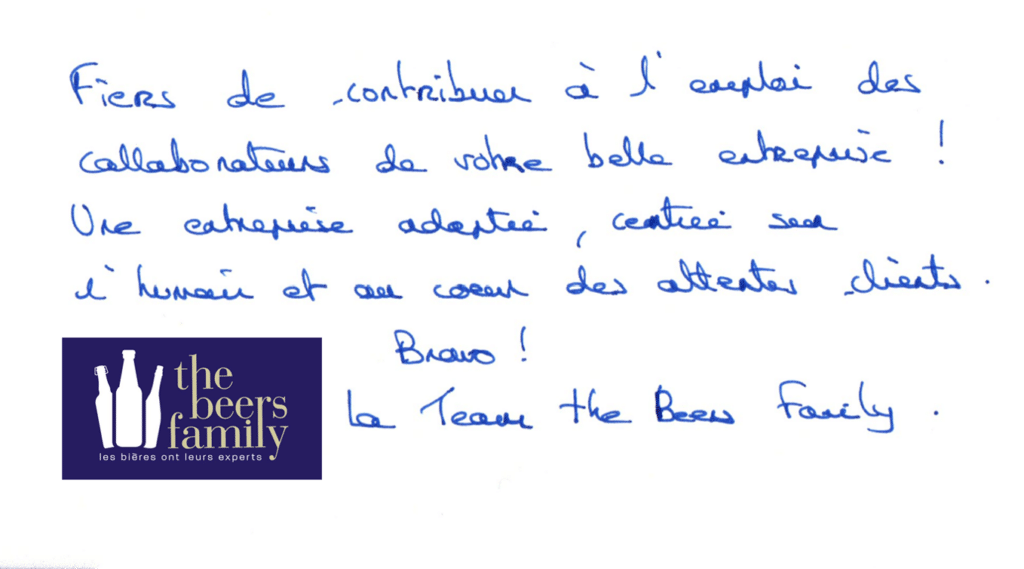 Fiers de contribuer à l'emploi des
collaborateurs de votre belle entreprise !
Une entreprise adaptée, centrée sur
l'humain et au coeur des attentes clients.
Bravo !
La Team the Beers Family.
the
beers
family
les bières ont leurs experts